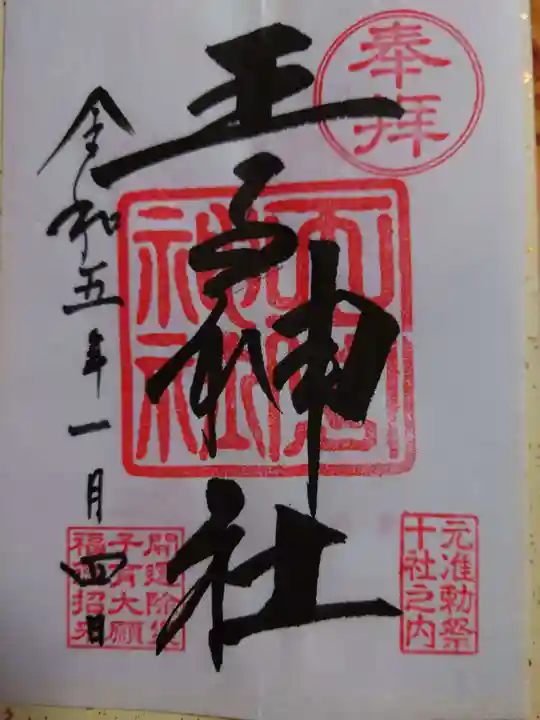 奉拝
元准勅祭
十社之内
王子神社
令和五年一月四日
開運除災
子育大願